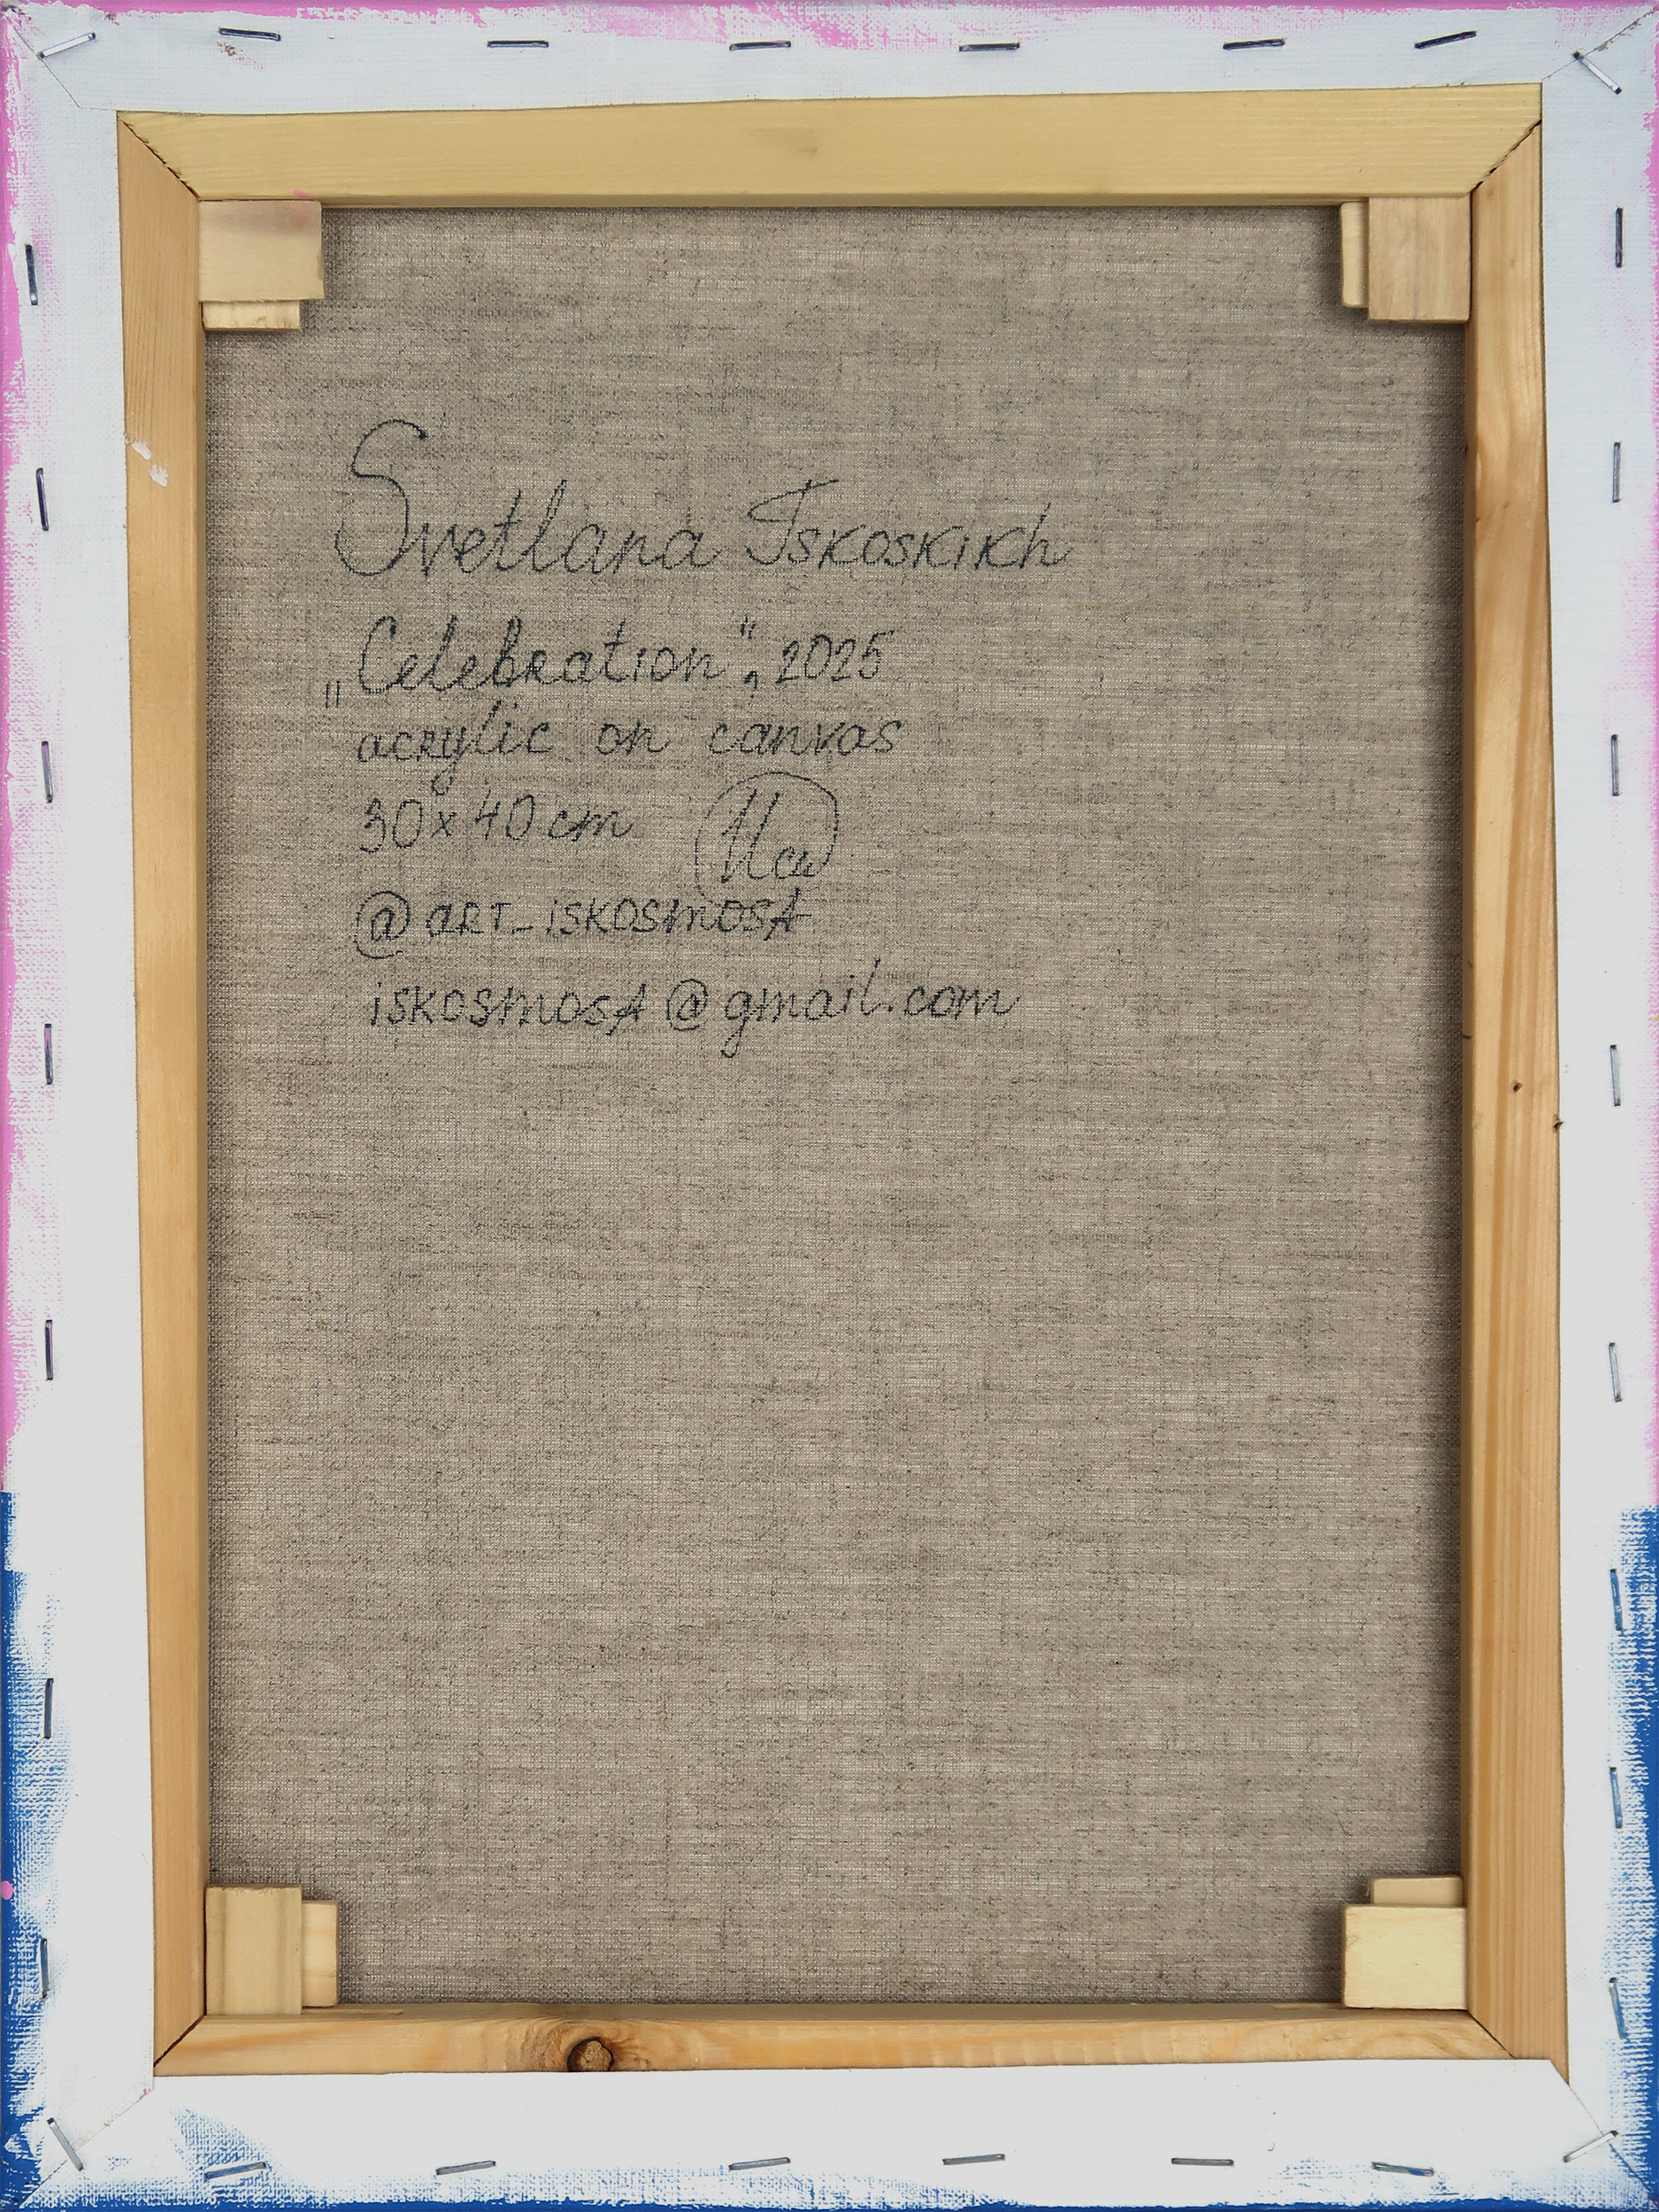 Svetlana Iskoskikh
„Celebration", 2025
acrylic on canvas
30x40 cm
@art_iskosmosA
iskosmosA@gmail.com